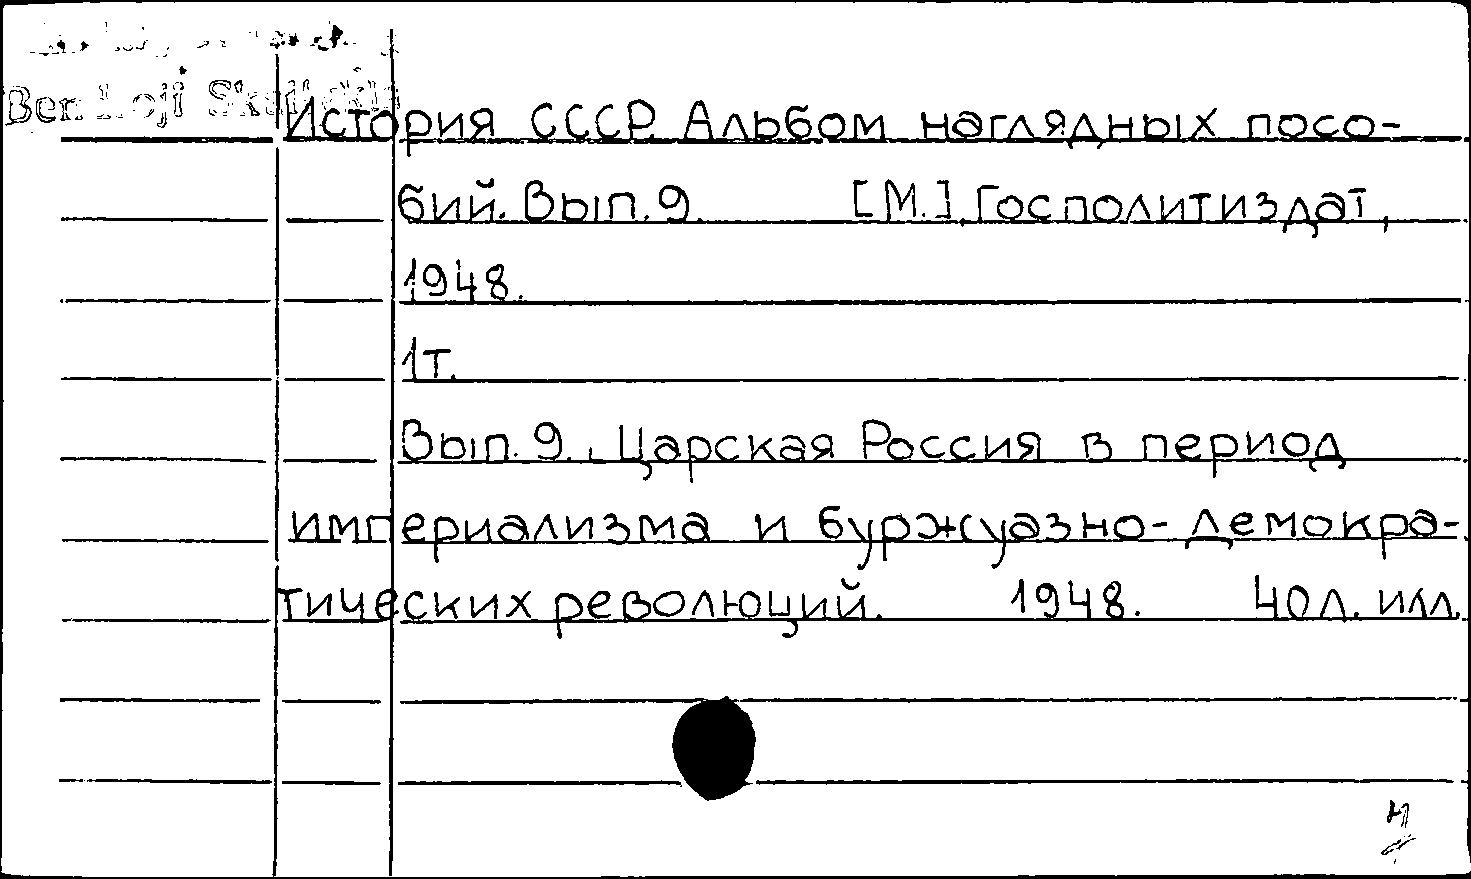 История СССР. Альбом наглядных посо-
бий. Вып. 9. [М.], Госполитиздат,
1948.
1т.
Вып. 9. Царская Россия в период
империализма и буржуазно-демокра-
тических революций. 1948. 40 л. илл.